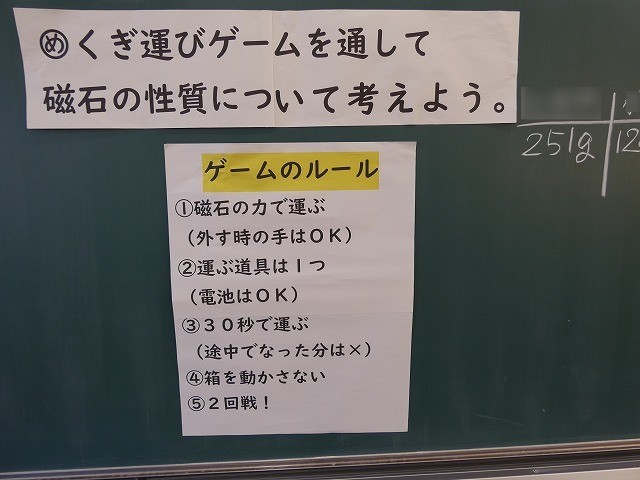 ㋱くぎ運びゲームを通して
磁石の性質について考えよう。
ゲームのルール
①磁石の力で運ぶ
(外す時の手はOK)
②運ぶ道具は1つ
(電池はOK)
③30秒で運ぶ
(途中でなった分は×)
④箱を動かさない
⑤2回戦!
251g